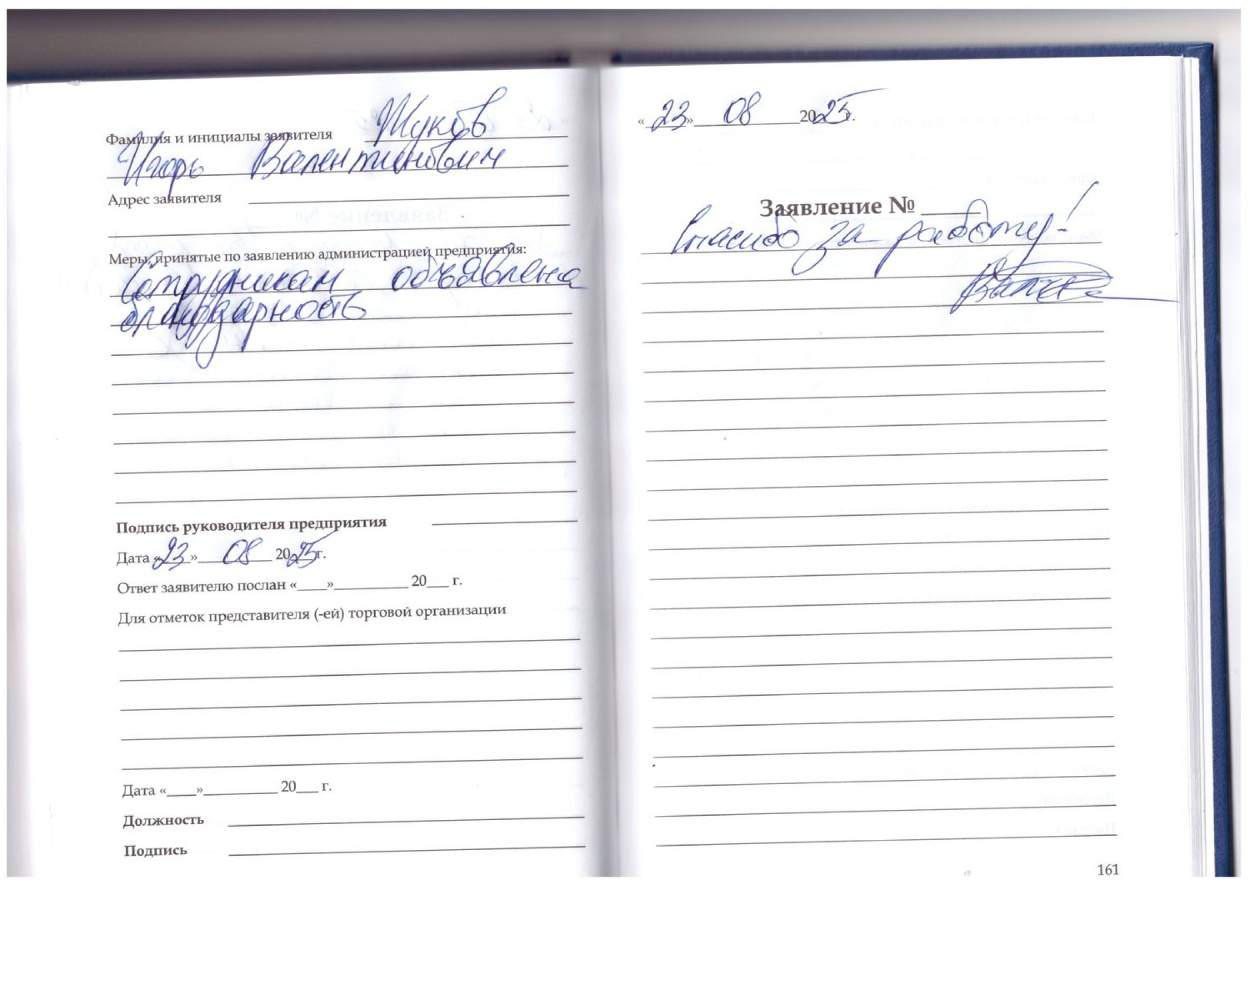 Фамилия и инициалы заявителя Жуков
Игорь Валентинович
Адрес заявителя
Меры, принятые по заявлению администрацией предприятия:
Сотрудникам объявлена
благодарность
Подпись руководителя предприятия
Дата «23» 08 2025г.
Ответ заявителю послан «____»__________ 20___ г.
Для отметок представителя (-ей) торговой организации
Дата «____»__________ 20___ г.
Должность
Подпись
«23» 08 2025г.
Заявление № _____
Спасибо за работу!
161